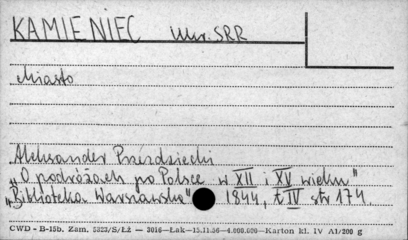 KAMIENIEC Ukr. SRR
Miasto
Aleksander Przezdziecki
„O podróżach po Polsce w XII i XV wieku"
„Biblioteka Warszawska" 1844, t IV str 174.
CWD - B-15b. Zam. 5323/S/Łż — 3016—Łak—15.11.56—4.000.000—Karton kl. IV A1/200 g